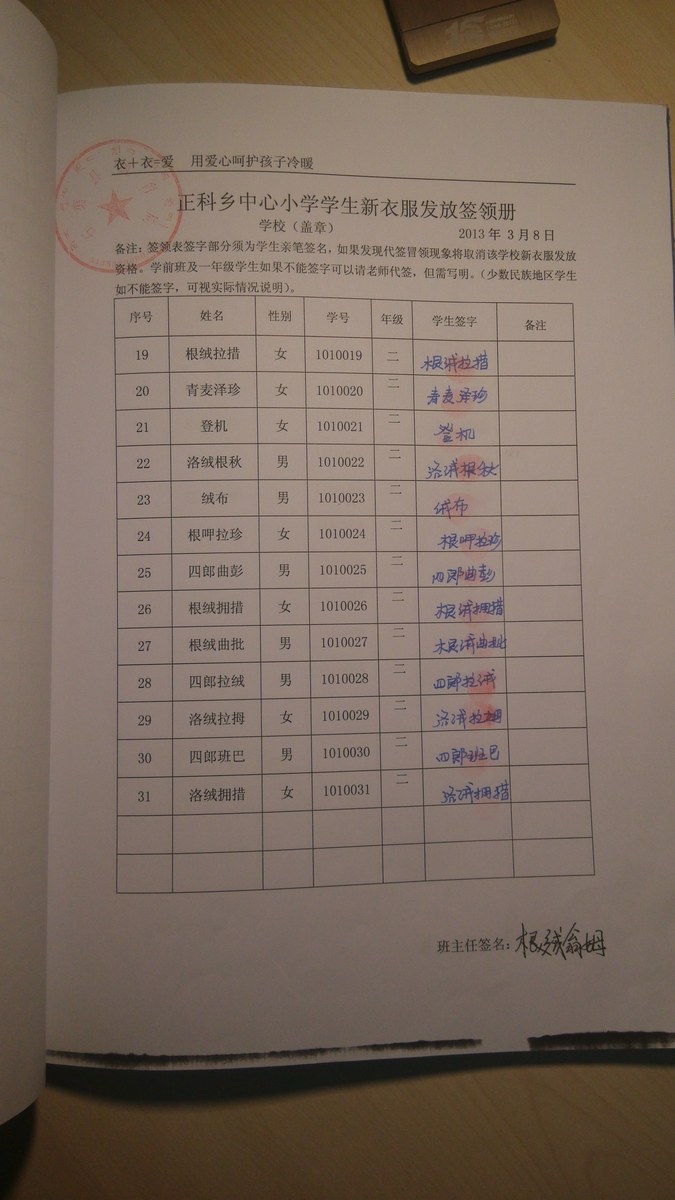 衣+衣=爱 用爱心呵护孩子冷暖
正科乡中心小学学生新衣服发放签领册
学校（盖章） 2013 年 3 月 8 日
备注：签领表签字部分须为学生亲笔签名，如果发现代签冒领现象将取消该学校新衣服发放
资格。学前班及一年级学生如果不能签字可以请老师代签，但需写明。（少数民族地区学生
如不能签字，可视实际情况说明）。
序号 姓名 性别 学号 年级 学生签字 备注
19 根绒拉措 女 1010019 二 根绒拉措
20 青麦泽珍 女 1010020 二 青麦泽珍
21 登机 女 1010021 二 登机
22 洛绒根秋 男 1010022 二 洛绒根秋
23 绒布 男 1010023 二 绒布
24 根呷拉珍 女 1010024 二 根呷拉珍
25 四郎曲彭 男 1010025 二 四郎曲彭
26 根绒拥措 女 1010026 二 根绒拥措
27 根绒曲批 男 1010027 二 根绒曲批
28 四郎拉绒 男 1010028 二 四郎拉绒
29 洛绒拉拇 女 1010029 二 洛绒拉拇
30 四郎班巴 男 1010030 二 四郎班巴
31 洛绒拥措 女 1010031 二 洛绒拥措
班主任签名：根绒翁姆